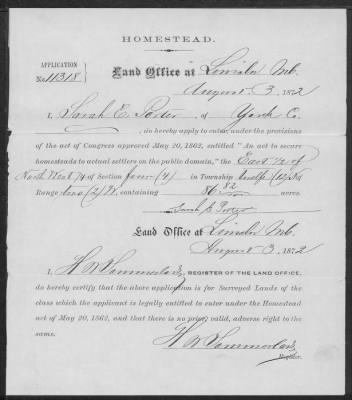 HOMESTEAD.
APPLICATION
No. 11318
Land Office at Lincoln Neb.
August 3, 1872
I, Sarah E. Porter of York Co.
do hereby apply to enter, under the provisions
of the act of Congress approved May 20, 1862, entitled "An act to secure
homesteads to actual settlers on the public domain," the East ½ of
North West ¼ of Section four (4) in Township twelve (12) N of
Range two (2) W, containing 86 82 acres.
Sarah E Porter
Land Office at Lincoln Neb.
August 3 1872
I, REGISTER OF THE LAND OFFICE,
do hereby certify that the above application is for Surveyed Lands of the
class which the applicant is legally entitled to enter under the Homestead
act of May 20, 1862, and that there is no prior, valid, adverse right to the
same.
Register.